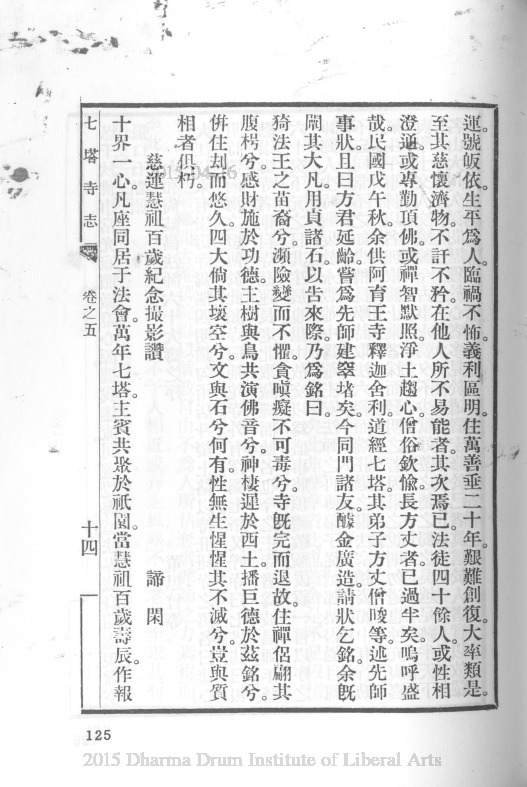 運號皈依。生平爲人。臨禍不怖。義利區明。住萬善垂二十年。艱難創復。大率類是。
至其慈懷濟物。不訐不矜。在他人所不易能者。其次焉已。法徒四十餘人。或性相
澄通。或專勤頂佛。或禪智默照。淨土趨心。僧俗欽愉。長方丈者。已過半矣。嗚呼盛
哉。民國戊午秋。余供阿育王寺釋迦舍利。道經七塔。其弟子方丈僧晙等。述先師
事狀。且曰方君延齡。嘗爲先師建窣堵矣。今同門諸友。醵金廣造。請狀乞銘。余旣
閘其大凡。用貞諸石。以告來際。乃爲銘曰。
猗法王之苗裔兮。瀕險變而不懼。貪嗔癡不可毒兮。寺旣完而退故。住禪侶翩其
腹枵兮。感財施於功德主。樹與鳥共演佛音兮。神棲遲於西土。播巨德於茲銘兮。
倂住刦而悠久。四大倘其壞空兮。文與石兮何有。性無生惺惺其不滅兮。豈與質
相者俱朽。
慈運慧祖百歲紀念撮影讚
諦閑
十界一心。凡座同居于法會。萬年七塔。主賓共聚於祇園。當慧祖百歲壽辰。作報
七塔寺志
卷之五
十四
125
2015 Dharma Drum Institute of Liberal Arts